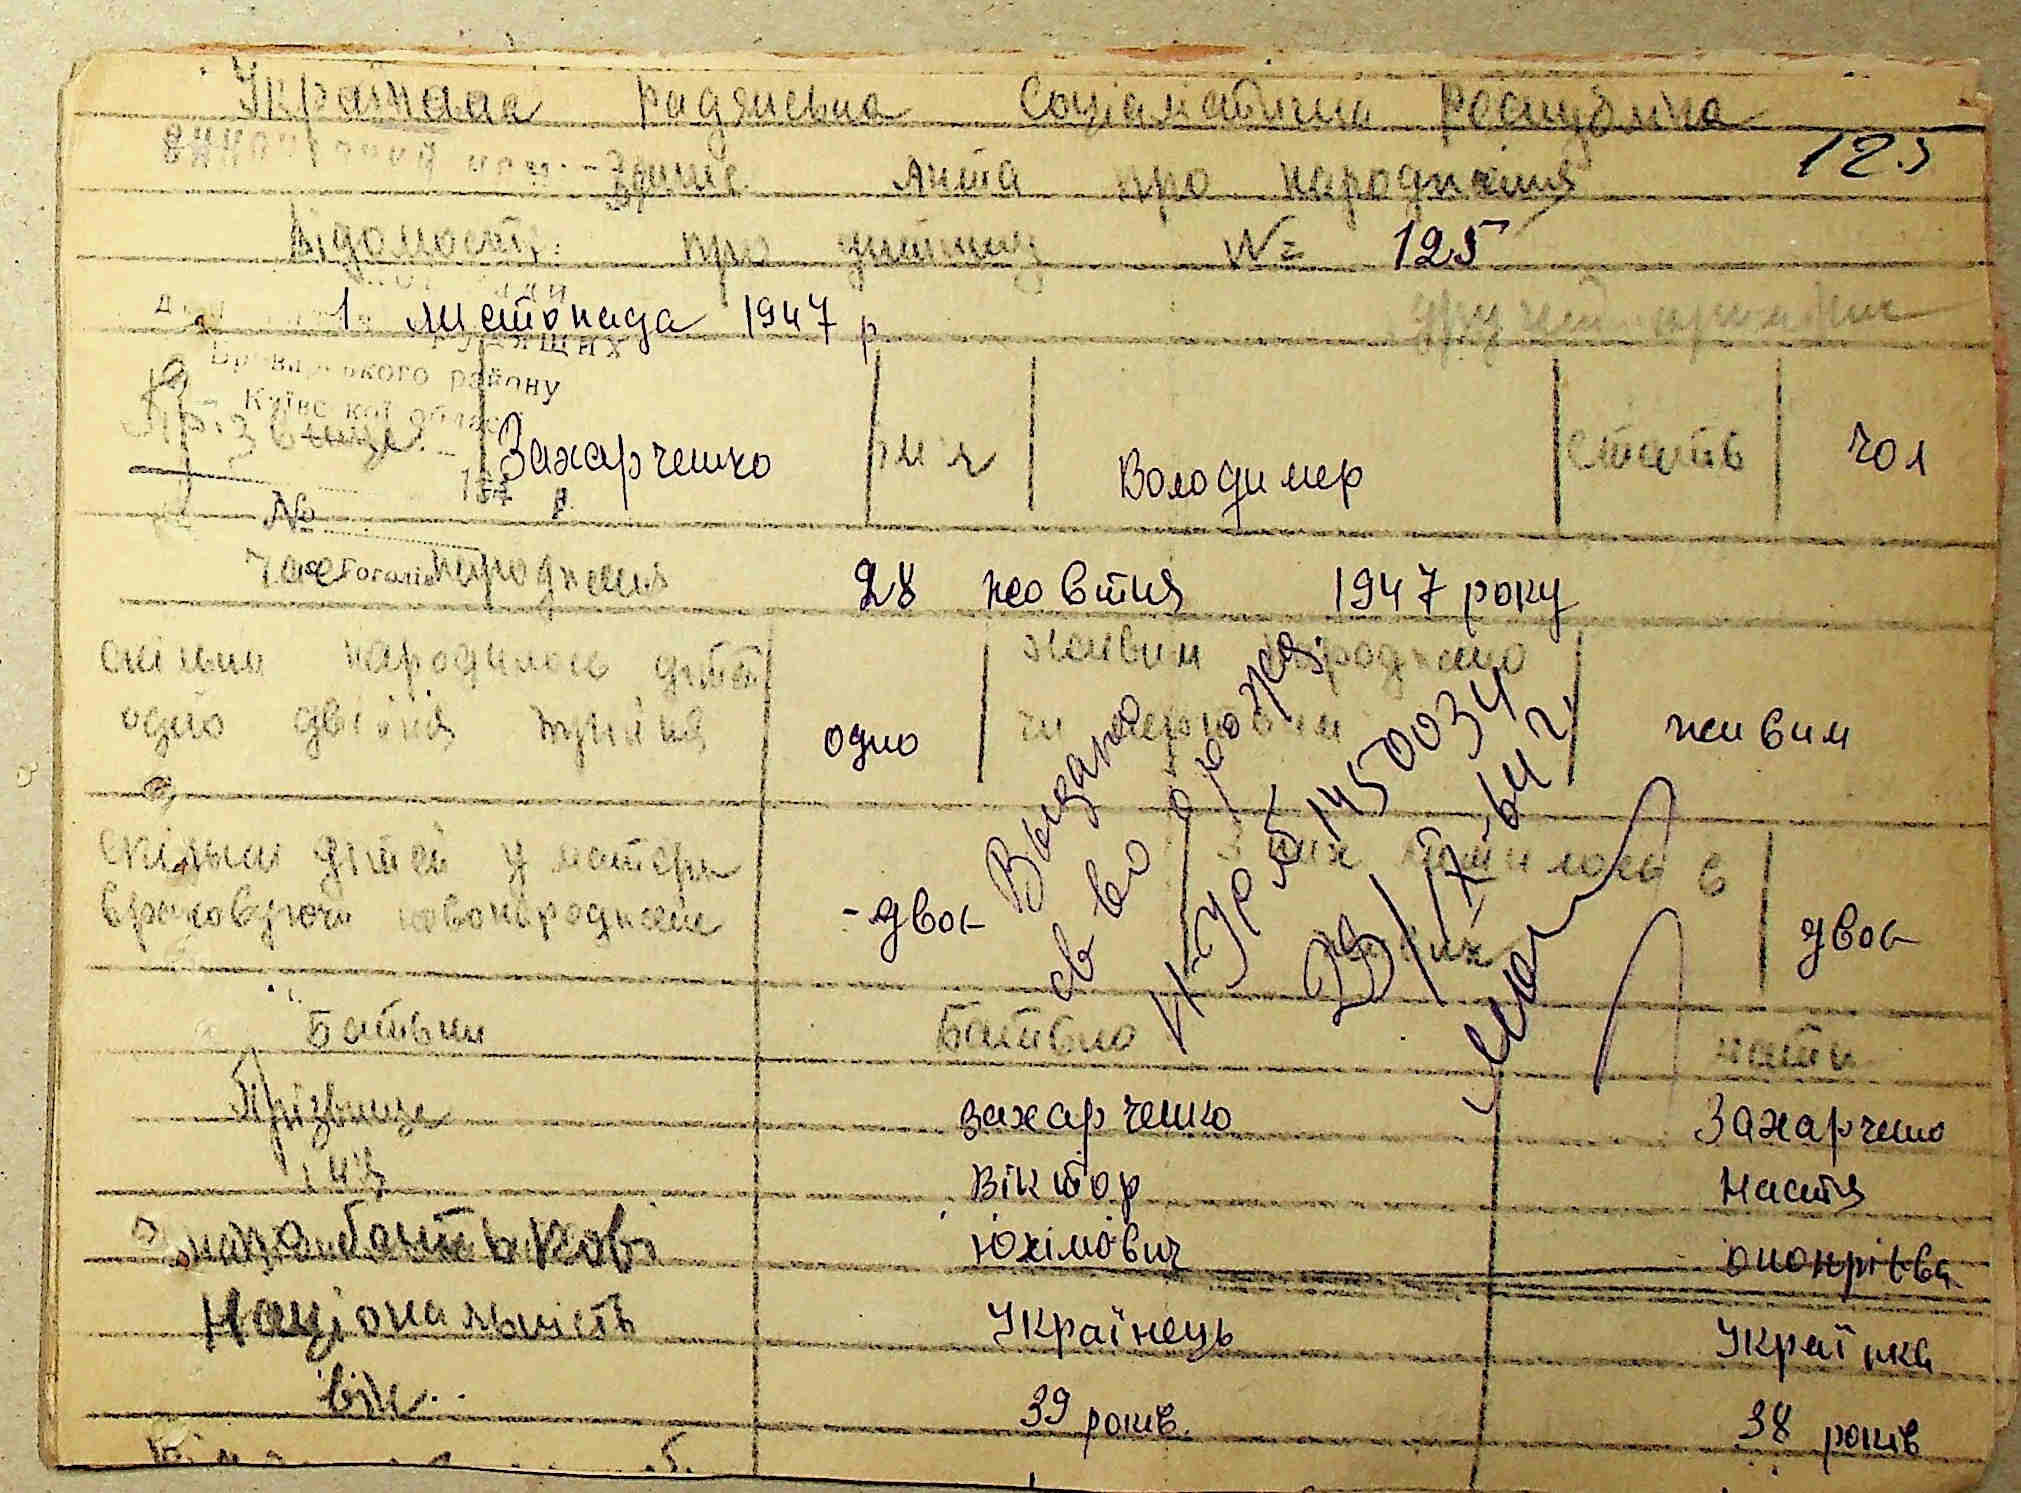 Українська радянська Соціалістична Республіка
125
Запис акта про народження
Відомості про дитину № 125
1 листопада 1947 р
району
Прізвище Захарченко імя Володимер стать чол
№
час народження 28 жовтня 1947 року
скільки народилось дітей живим народжено
одно двійня трійня одно чи мертвим живим
скільки дітей у матері з них лишилось в
враховуючи новонароджене - двоє живих двоє
Выдано
св во о рожд.
II-УР № 1450034
29/X-64 г.
Батьки Батько мати
Прізвище захарченко Захарченко
імя Віктор Настя
по батькові Юхімович Онопрієва
Національність Українець Українка
вік 39 років 38 років